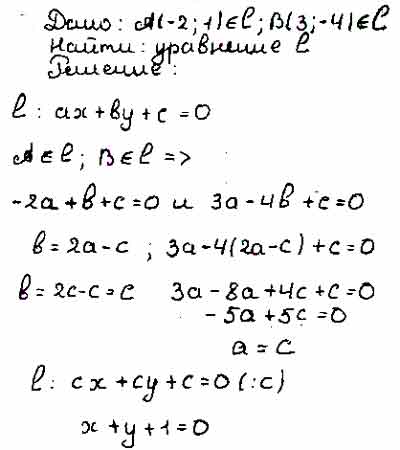 Дано: A(-2; 1)∈l; B(3; -4)∈l
Найти: уравнение l
Решение:
l: ax+by+c=0
A∈l; B∈l =>
-2a+b+c=0 и 3a-4b+c=0
b=2a-c ; 3a-4(2a-c)+c=0
b=2c-c=c 3a-8a+4c+c=0
-5a+5c=0
a=c
l: cx+cy+c=0 (:c)
x+y+1=0